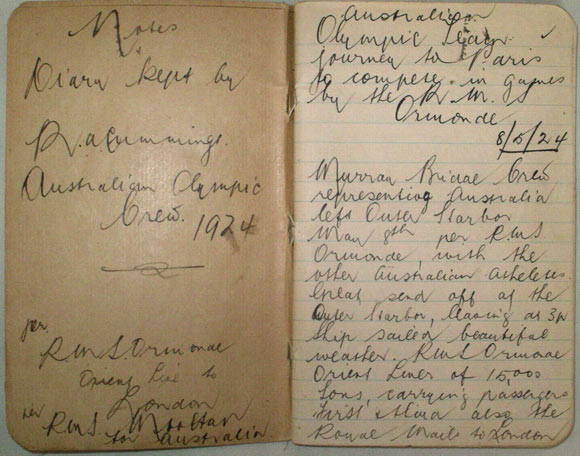 Notes
Diary kept by
R. A Cummings.
Australian Olympic
Crew.
1924
per
R.M.S Ormonde
Orient Line to
London
per
R.M.S Mooltan
to Australia
Australian
Olympic Team
journey to Paris
to compete in games
by the R.M.S
Ormonde
8/5/24
Murray Bridge Crew
representing Australia
left Outer Harbor
May 8th per R.M.S
Ormonde, with the
other Australian Atheletes.
Great send off at the
Outer Harbor, leaving at 3
ship sailed beautiful
weather. R.M.S Ormonde
Orient Liner of 15,000
tons, carrying passengers
First &  also the
Royal Mails to London